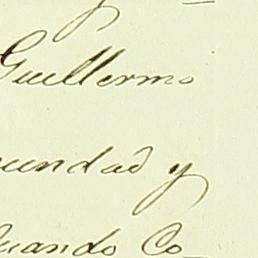 Guillermo
undad y
uando Co_